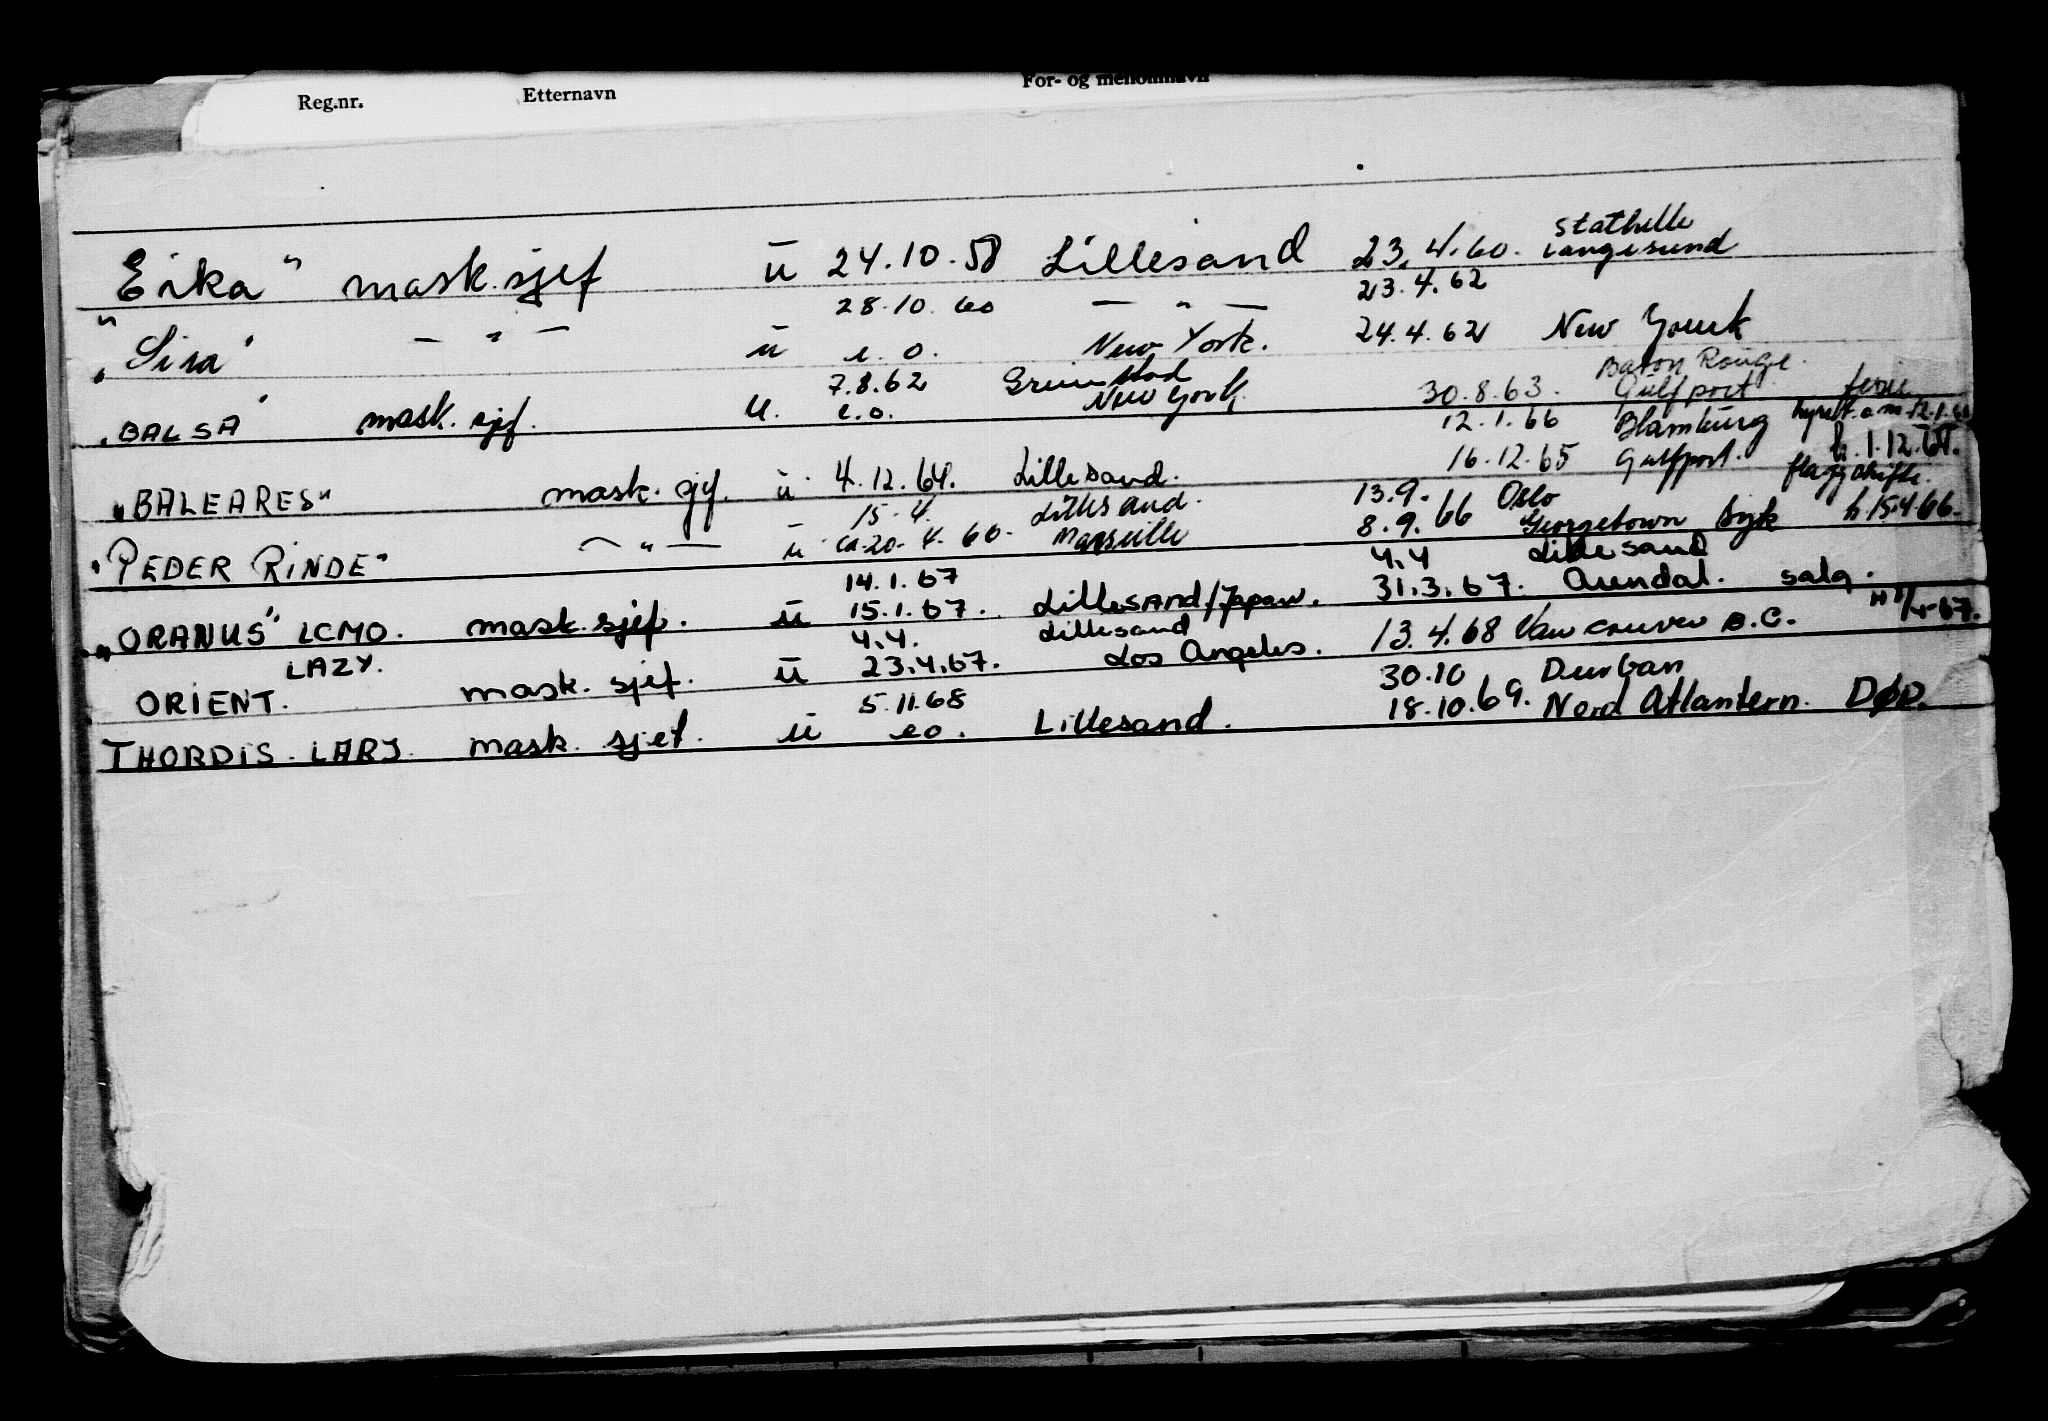 Reg.nr. Etternavn For- og mellomnavn
Stathelle
Erka" mask.sjef ū 24.10.58 Lillesand 23.4.60. Langesund
28.10.60 — " — 23.4.62
"Sira" — " — u e.o. New York. 24.4.62 New Yourk
7.8.62 Grimstad Baton Rouge.
"BALSA" mask. sjef. u. e.o. New York 30.8.63. Gulfport ferie
12.1.66 Hamburg hyrett.o.m. 12.1.66
"BALEARES" mask. sjf. u 4.12.64. Lillesand. 16.12.65 Gulfport. h. 1.12.65.
flaggskifte.
15.4. Lillesand. 13.9. Oslo
"PEDER RINDE" — " — u ca.20.4.60. Marseille 8.9.66 Georgetown Syk h 15.4.66.
14.1.67 4.4 Lillesand
"ORANUS" LCMO. mask.sjef. u 15.1.67. Lillesand/Japan. 31.3.67. Arendal. salg.
LAZY. 4.4. Lillesand
ORIENT. mask. sjef. ū 23.4.67. Los Angeles. 13.4.68 Vancouver B.C.
5.11.68 30.10 Durban
THORDIS. LARJ. mask. sjef. u eo. Lillesand. 18.10.69. Nord Atlantern. DØD.